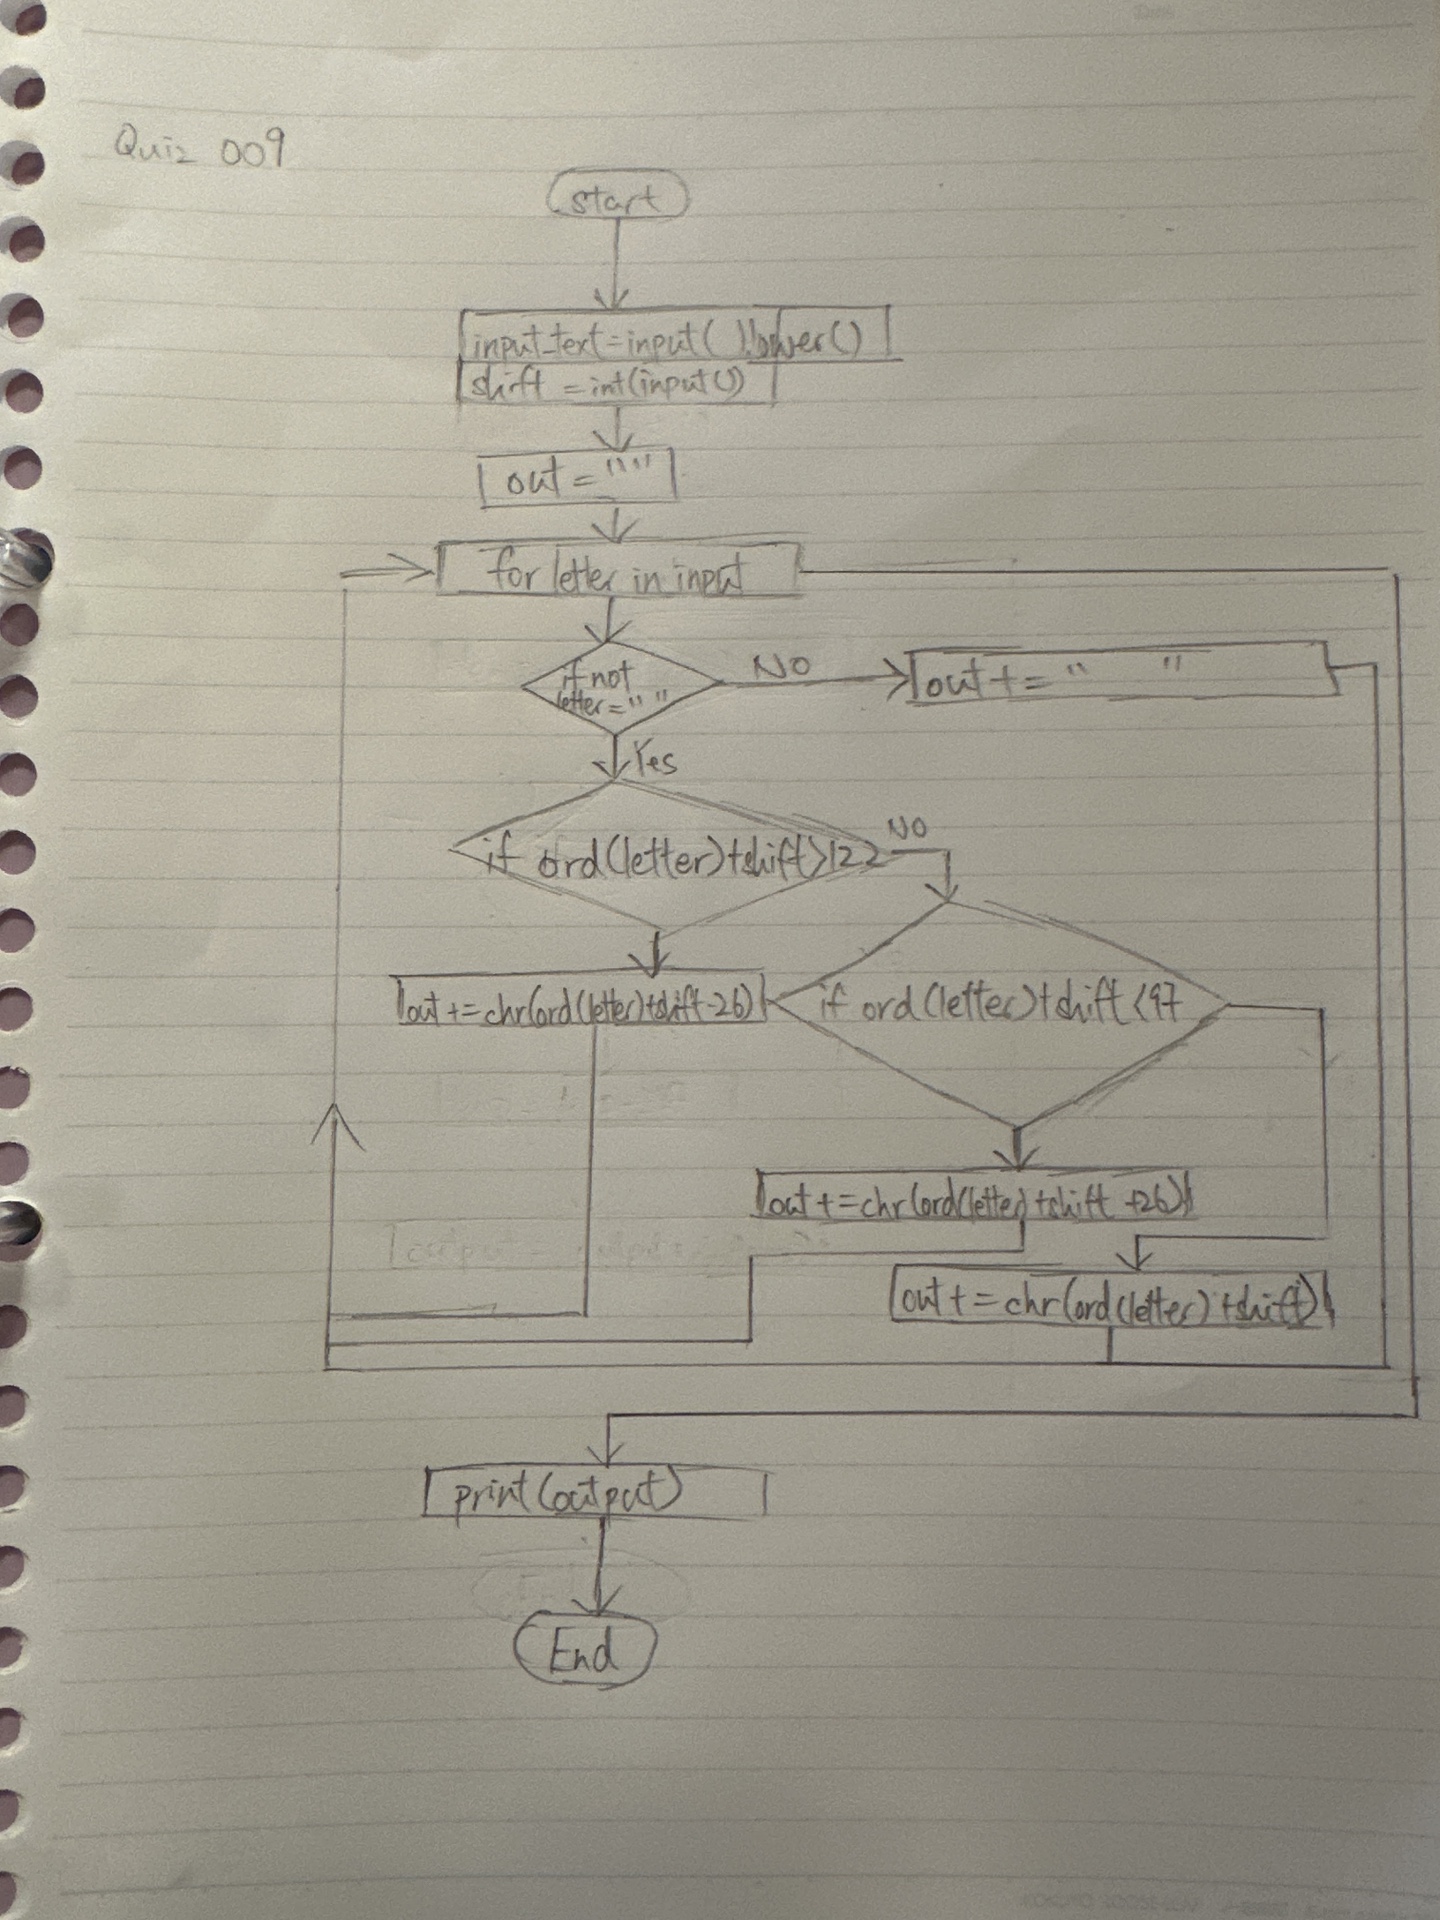 Quiz 009
start
input_text=input( ).lower()
shift = int(input())
out = ""
for letter in input
if not
letter = " "
NO
out += " "
Yes
if ord(letter)+shift>122
NO
out += chr(ord(letter)+shift-26)
if ord(letter)+shift<97
out += chr(ord(letter)+shift +26)
out += chr(ord(letter)+shift)
print(output)
End